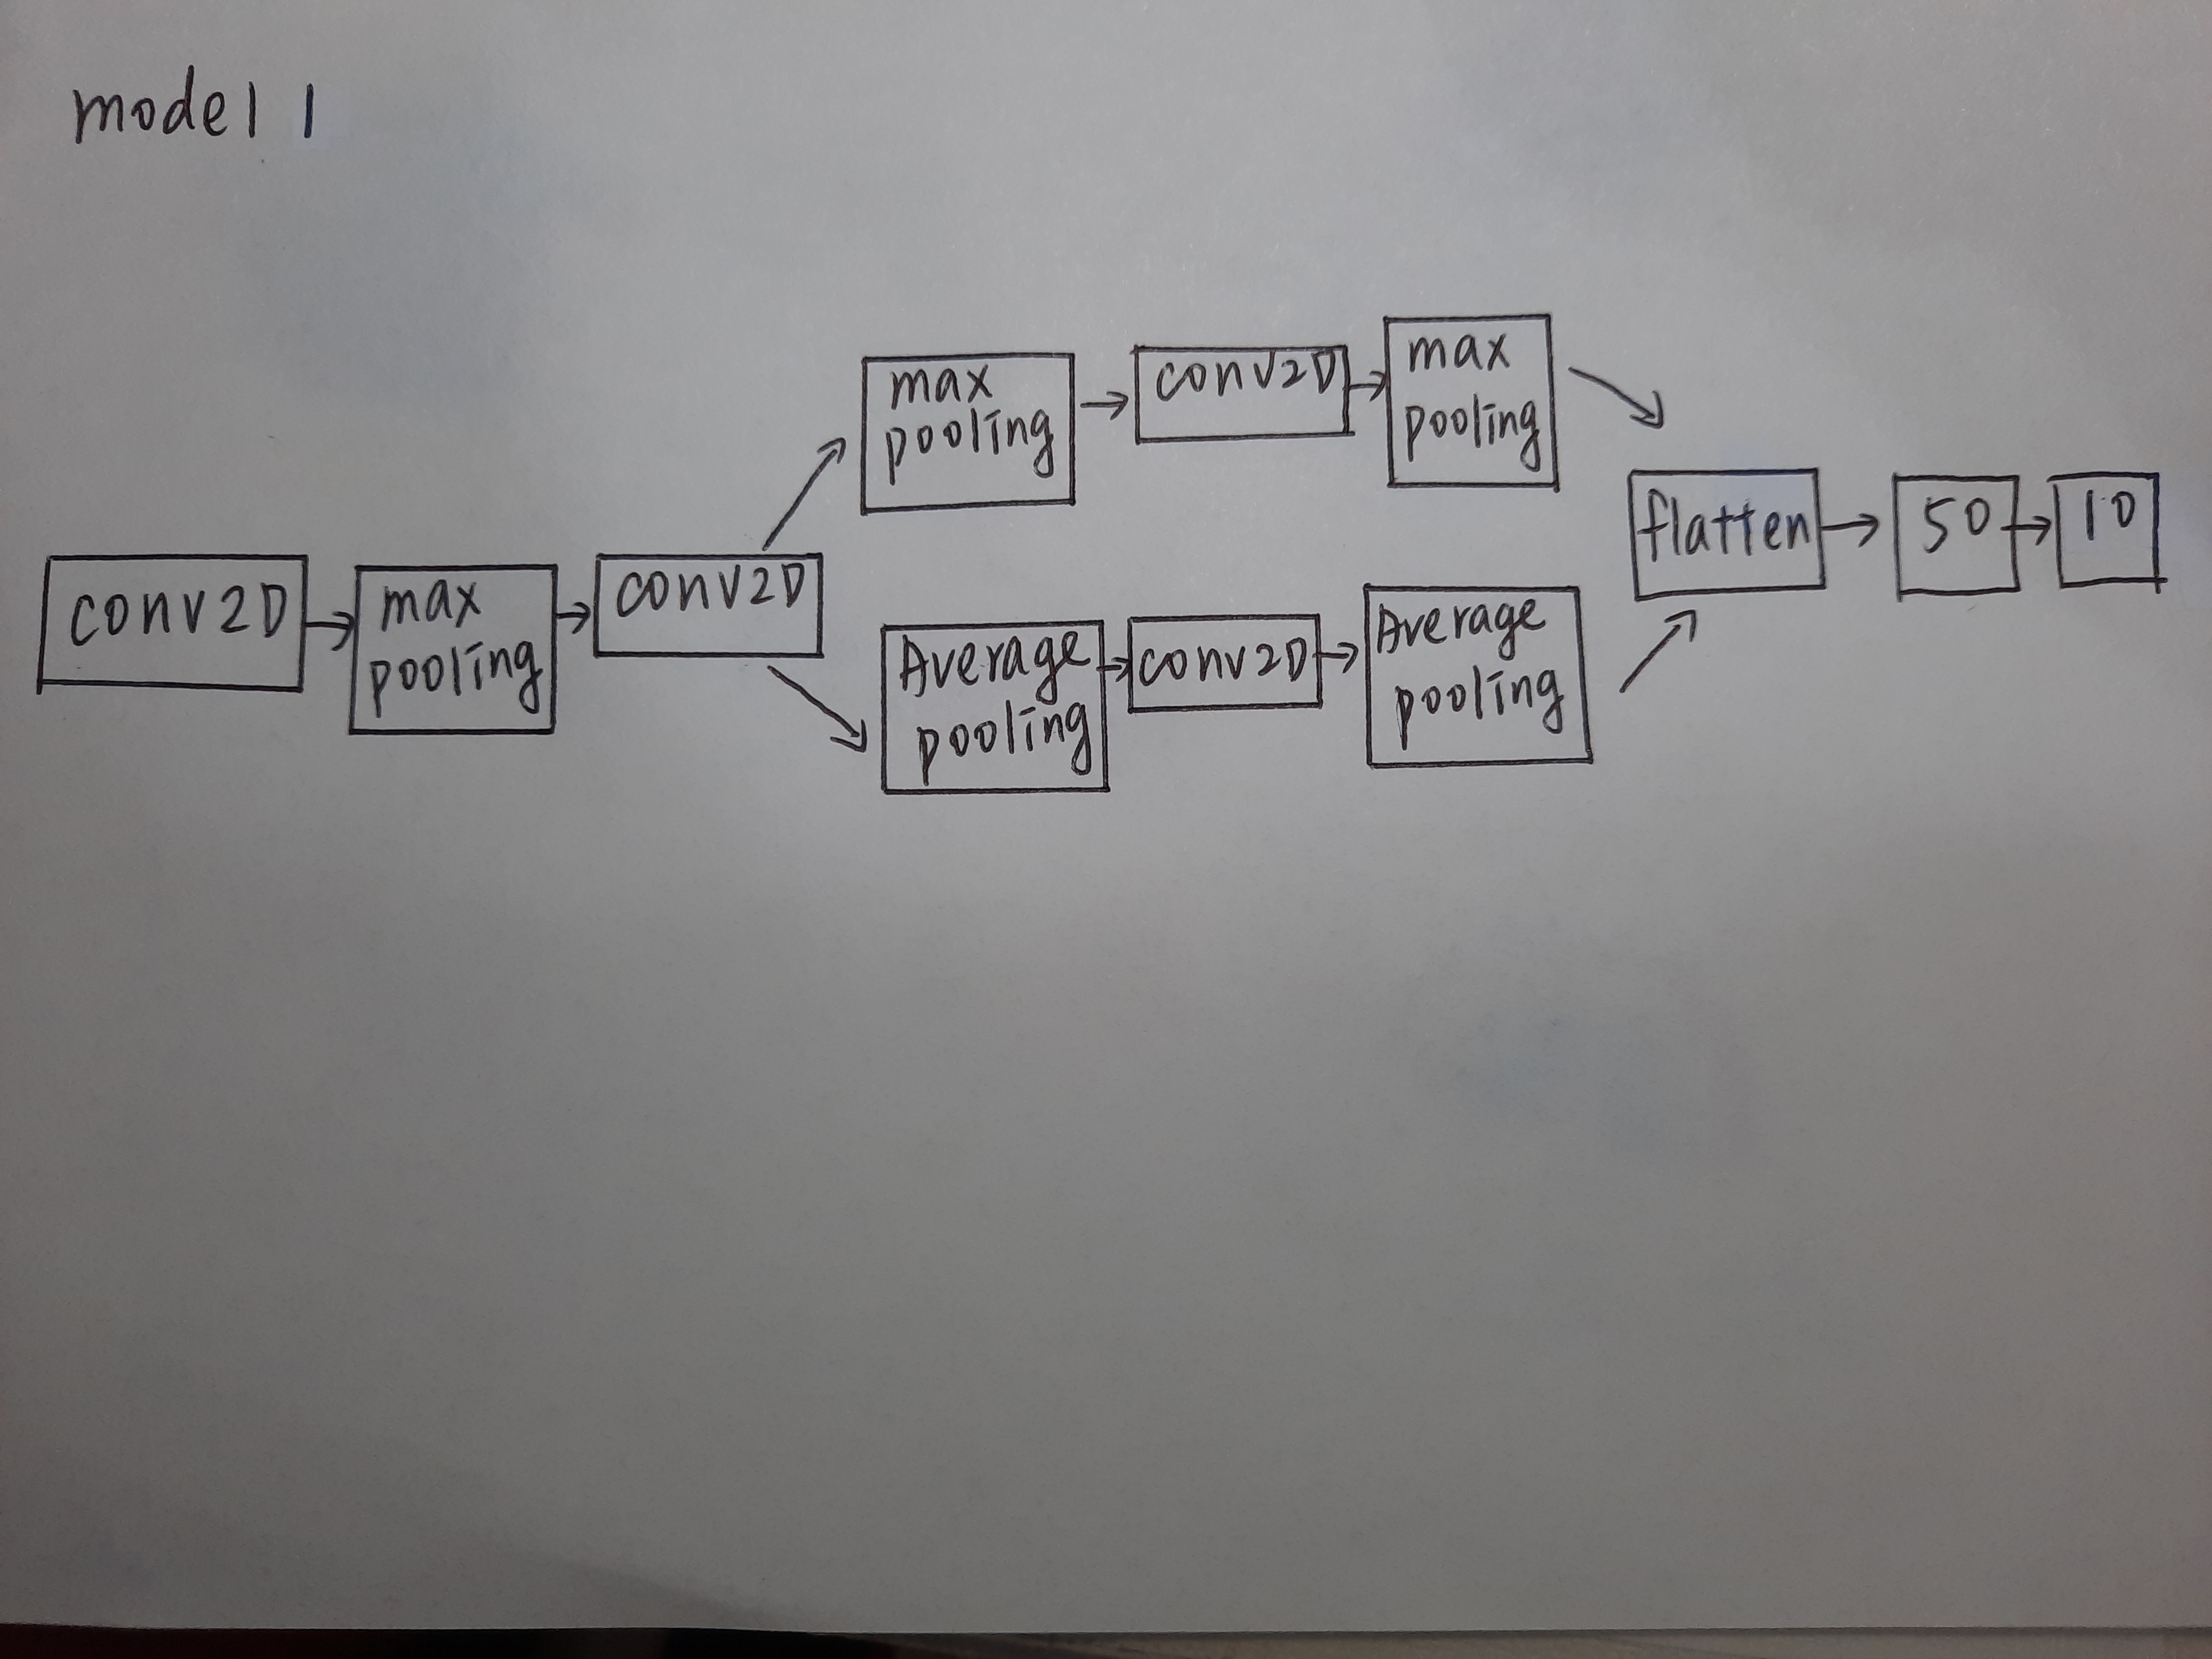 model 1
conv2D
max
pooling
conv2D
max
pooling
conv2D
max
pooling
Average
pooling
conv2D
Average
pooling
flatten
50
10